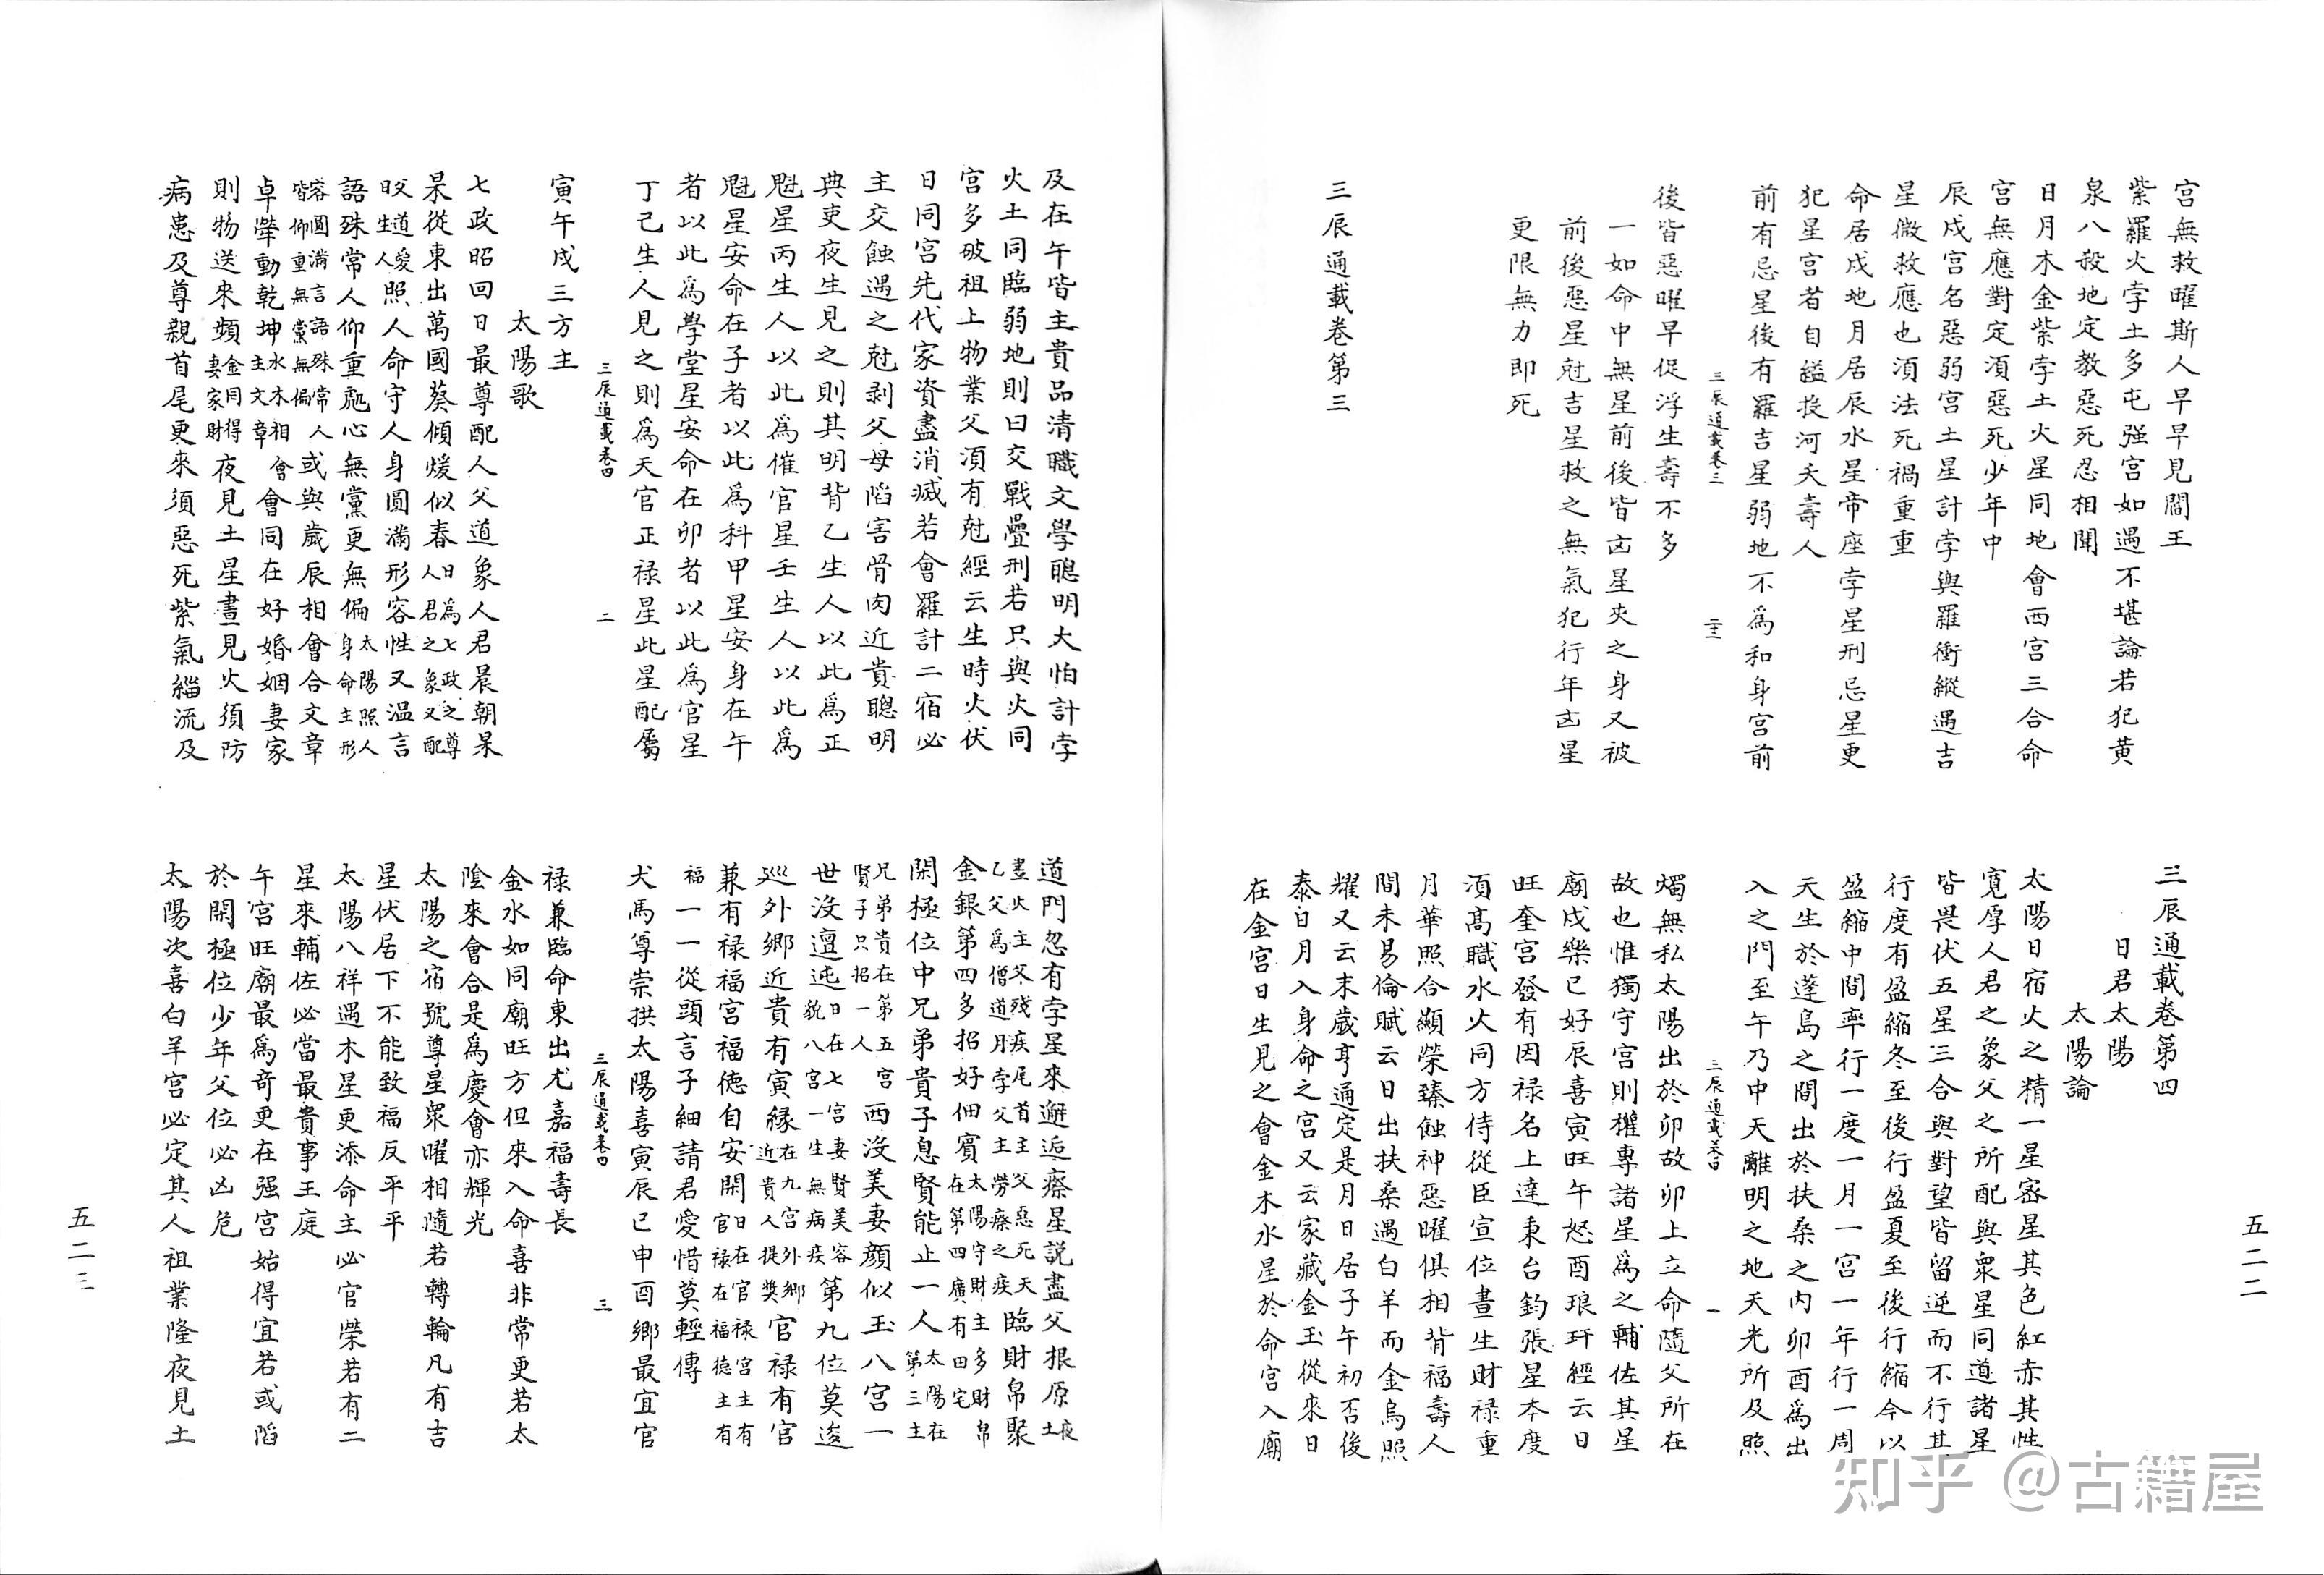 宮無救曜斯人早早見閻王
紫羅火孛土多屯强宮如遇不堪論若犯黃
泉八殺地定教惡死忍相聞
日月木金紫孛土火星同地會西宮三合命
宮無應對定湏惡死少年中
辰戌宮名惡弱宮土星計孛與羅衝縱遇吉
星微救應也湏法死禍重重
命居戌地月居辰水星帝座孛星刑忌星更
犯星宮者自縊投河夭壽人
前有忌星後有羅吉星弱地不爲和身宮前
三辰通載卷三
二十三
後皆惡曜早促浮生壽不多
一如命中無星前後皆凶星夾之身又被
前後惡星尅吉星救之無氣犯行年凶星
更限無力即死
三辰通載卷第三
三辰通載卷第四
日君太陽
太陽論
太陽日宿火之精一星宻星其色紅赤其性
寬厚人君之象父之所配與衆星同道諸星
皆畏伏五星三合與對望皆留逆而不行其
行度有盈縮冬至後行盈夏至後行縮今以
盈縮中間率行一度一月一宮一年行一周
天生於蓬島之間出於扶桑之内卯酉爲出
入之門至午乃中天離明之地天光所及照
三辰通載卷四
一
燭無私太陽出於卯故卯上立命隨父所在
故也惟獨守宮則權專諸星爲之輔佐其星
廟戌樂巳好辰喜寅旺午怒酉琅玕經云日
旺奎宮發有因禄名上達東台鈞張星本度
湏髙職水火同方侍從臣宣位晝生財禄重
月華照合顯榮臻蝕神惡曜俱相背福壽人
間未易倫賦云日出扶桑遇白羊而金烏照
耀又云末歲亨通定是月日居子午初否後
泰日月入身命之宮又云家藏金玉從來日
在金宮日生見之會金木水星於命宮入廟
五二二
及在午皆主貴品清職文學聰明大怕計孛
火土同臨弱地則曰交戰疊刑若只與火同
宮多破祖上物業父湏有尅經云生時火伏
日同宮先代家資盡消滅若會羅計二宿必
主交蝕遇之尅剥父母陷害骨肉近貴聰明
典吏夜生見之則其明背乙生人以此爲正
魁星丙生人以此爲催官星壬生人以此爲
魁星安命在子者以此爲科甲星安身在午
者以此爲學堂星安命在卯者以此爲官星
丁己生人見之則爲天官正禄星此星配屬
三辰通載卷四
二
寅午戌三方主
太陽歌
七政昭回日最尊配人父道象人君晨朝杲
杲從東出萬國葵傾煖似春日爲七政之尊
人君之象又配
父道愛
日生人照人命守人身圓滿形容性又温言
語殊常人仰重爮心無黨更無偏太陽照人
身命主形
容圓滿言語殊常人
皆仰重無黨無偏或與歲辰相會合文章
卓犖動乾坤水木相會
主文章會同在好婚姻妻家
則物送來頻金同得
妻家財夜見土星晝見火須防
病患及尊親首尾更來須惡死紫氣緇流及
道門忽有孛星來邂逅瘵星説盡父根原夜土
晝火主父殘疾尾首主父惡死天
乙父爲僧道月孛父主勞瘵之疾臨財帛聚
金銀第四多招好佃賓太陽守財主多財帛
在第四廣有田宅
閑極位中兄弟貴子息賢能止一人太陽在
第三主
兄弟貴在第五宮
賢子只招一人西沒美妻顔似玉八宮一
世沒邅迍日在七宮妻賢美容
貌八宮一生無病疾第九位莫逡
巡外鄉近貴有寅縁在九宮外鄉
近貴人提奬官禄有官
兼有禄福宮福徳自安閑日在官禄宮主有
官禄在福徳主有
福一一從頭言子細請君愛惜莫輕傳
犬馬等崇拱太陽喜寅辰巳申酉鄉最宜官
三辰通載卷四
三
禄兼臨命東出尤嘉福壽長
金水如同廟旺方但來入命喜非常更若太
陰來會合是爲慶會亦輝光
太陽之宿號尊星衆曜相隨若轉輪凡有吉
星伏居下不能致福反平平
太陽八祥遇木星更添命主必官榮若有二
星來輔佐必當最貴事王庭
午宮旺廟最爲奇更在强宮始得宜若或陷
於閑極位少年父位必凶危
太陽次喜白羊宮必定其人祖業隆夜見土
五二三
知乎 @古籍屋